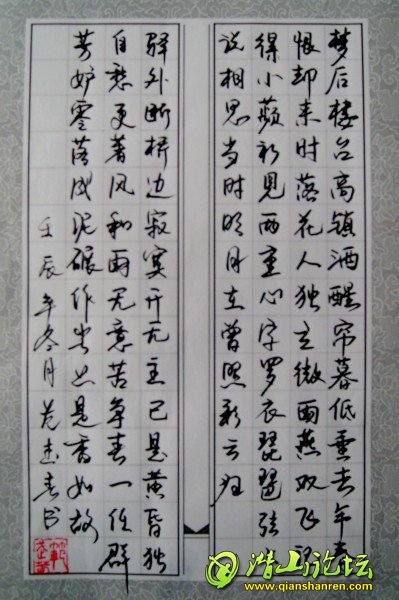 梦后楼台高锁酒醒帘幕低垂去年春
恨却来时落花人独立微雨燕双飞记
得小蘋初见两重心字罗衣琵琶弦
说相思当时明月在曾照彩云归
驿外断桥边寂寞开无主已是黄昏独
自愁更著风和雨无意苦争春一任群
芳妒零落成泥碾作尘只是香如故
壬辰年冬月范志春书
潜山论坛
www.qianshanren.com